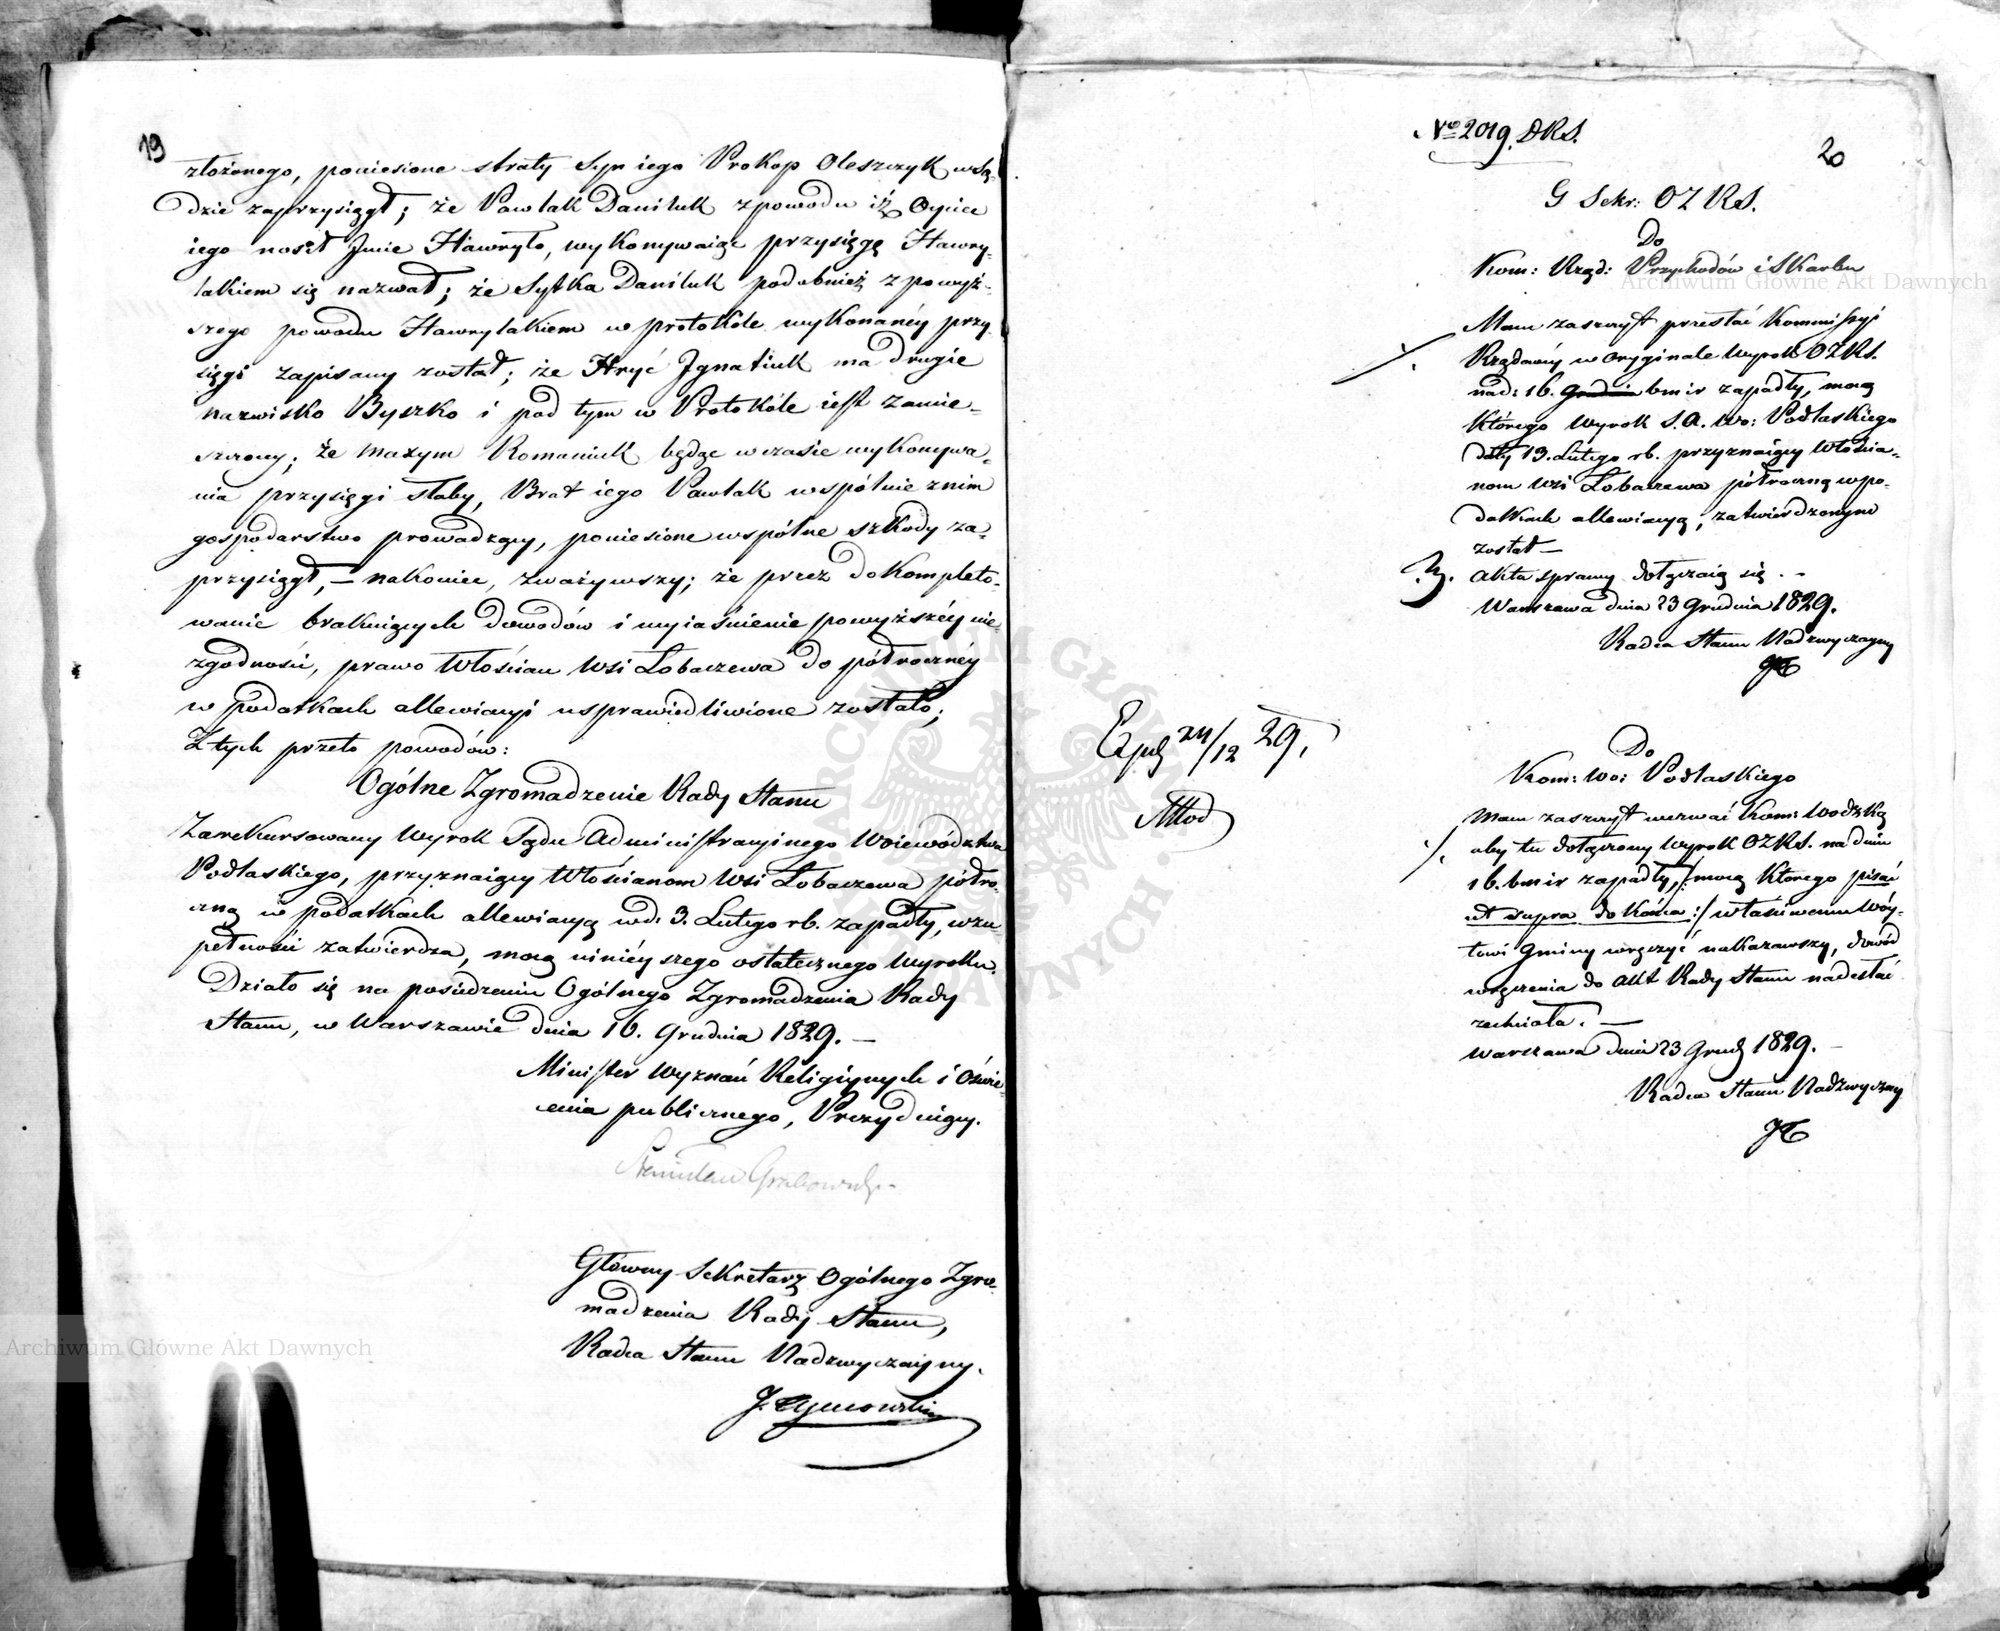 19
złożonego, poniesione straty Syn iego Prokop Oleszczyk w Są-
dzie zaprzysiągł; że Pawlak Daniluk z powodu iż Oyciec
iego nosił Jmie Hawryło, wykonywaiąc przysięgę Hawry-
lakiem się nazwał; że Sytka Daniluk podobnież z powyż-
szego powodu Hawrylakiem w protokóle wykonanéy przy
sięgi zapisany został; że Hryć Jgnatiuk ma drugie
nazwisko Byszko i pod tym w Protokóle iest zamie-
szczony; że Maxym Romaniuk będąc w czasie wykonywa-
nia przysięgi słaby, Brat iego Pawlak wspólnie z nim
gospodarstwo prowadzący, poniesione wspólne szkody za-
przysiągł, — nakoniec, zważywszy; że przez dokompleto-
wanie braknących dowodów i wyiaśnienie powyższéy nie-
zgodności, prawo Włościan Wsi Łobaczewa do półrocznéy
w podatkach allewiacyi usprawiedliwione zostało;
Z tych przeto powodów:
Ogólne Zgromadzenie Rady Stanu
Zarekursowany Wyrok Sądu Administracyinego Woiewództwa
Podlaskiego, przyznaiący Włościanom Wsi Łobaczewa półro-
czną w podatkach allewiacyą w d: 3. Lutego rb. zapadły, w zu-
pełności zatwierdza, mocą ninieyszego ostatecznego Wyroku.
Działo się na posiedzeniu Ogólnego Zgromadzenia Rady
Stanu, w Warszawie dnia 16. Grudnia 1829. —
Minister Wyznań Religiynych i Oświe-
cenia publicznego, Prezyduiący.
Stanisław Grabowski
Główny Sekretarz Ogólnego Zgro-
madzenia Rady Stanu,
Radca Stanu Nadzwyczayny.
J. Tymowski
No 2019. DRS.
20
G Sekr: OZRS.
Do
Kom: Rząd: Przychodów i Skarbu
Mam zaszczyt przesłać Kommissyi
Rządowéy w Oryginale Wyrok OZRS.
na d: 16. Grudnia bm i r zapadły, mocą
którego Wyrok S.A. Wo: Podlaskiego
daty 13. Lutego rb. przyznaiący Włościa-
nom Wsi Łobaczewa półroczną w po-
datkach allewiacyą, zatwierdzonym
został —
Akta sprawy dołączaią się. —
Warszawa dnia 23 Grudnia 1829.
Radca Stanu Nadzwyczayny
JT
Exp 24/12 29.
Do
Kom: Wo: Podlaskiego
Mam zaszczyt wezwać Kom: Wodzką
aby tu dołączony Wyrok OZRS. na dniu
16. bm i r zapadły, /: mocą którego pisać
ut supra do końca :/ właściwemu Wóy-
towi Gminy wręczyć nakazawszy, dowód
wręczenia do Akt Rady Stanu nadesłać
zechciała. —
Warszawa dnia 23 Grud 1829. —
Radca Stanu Nadzwyczny
JT
Archiwum Główne Akt Dawnych
Archiwum Główne Akt Dawnych
ARCHIWUM GŁÓWNE AKT DAWNYCH